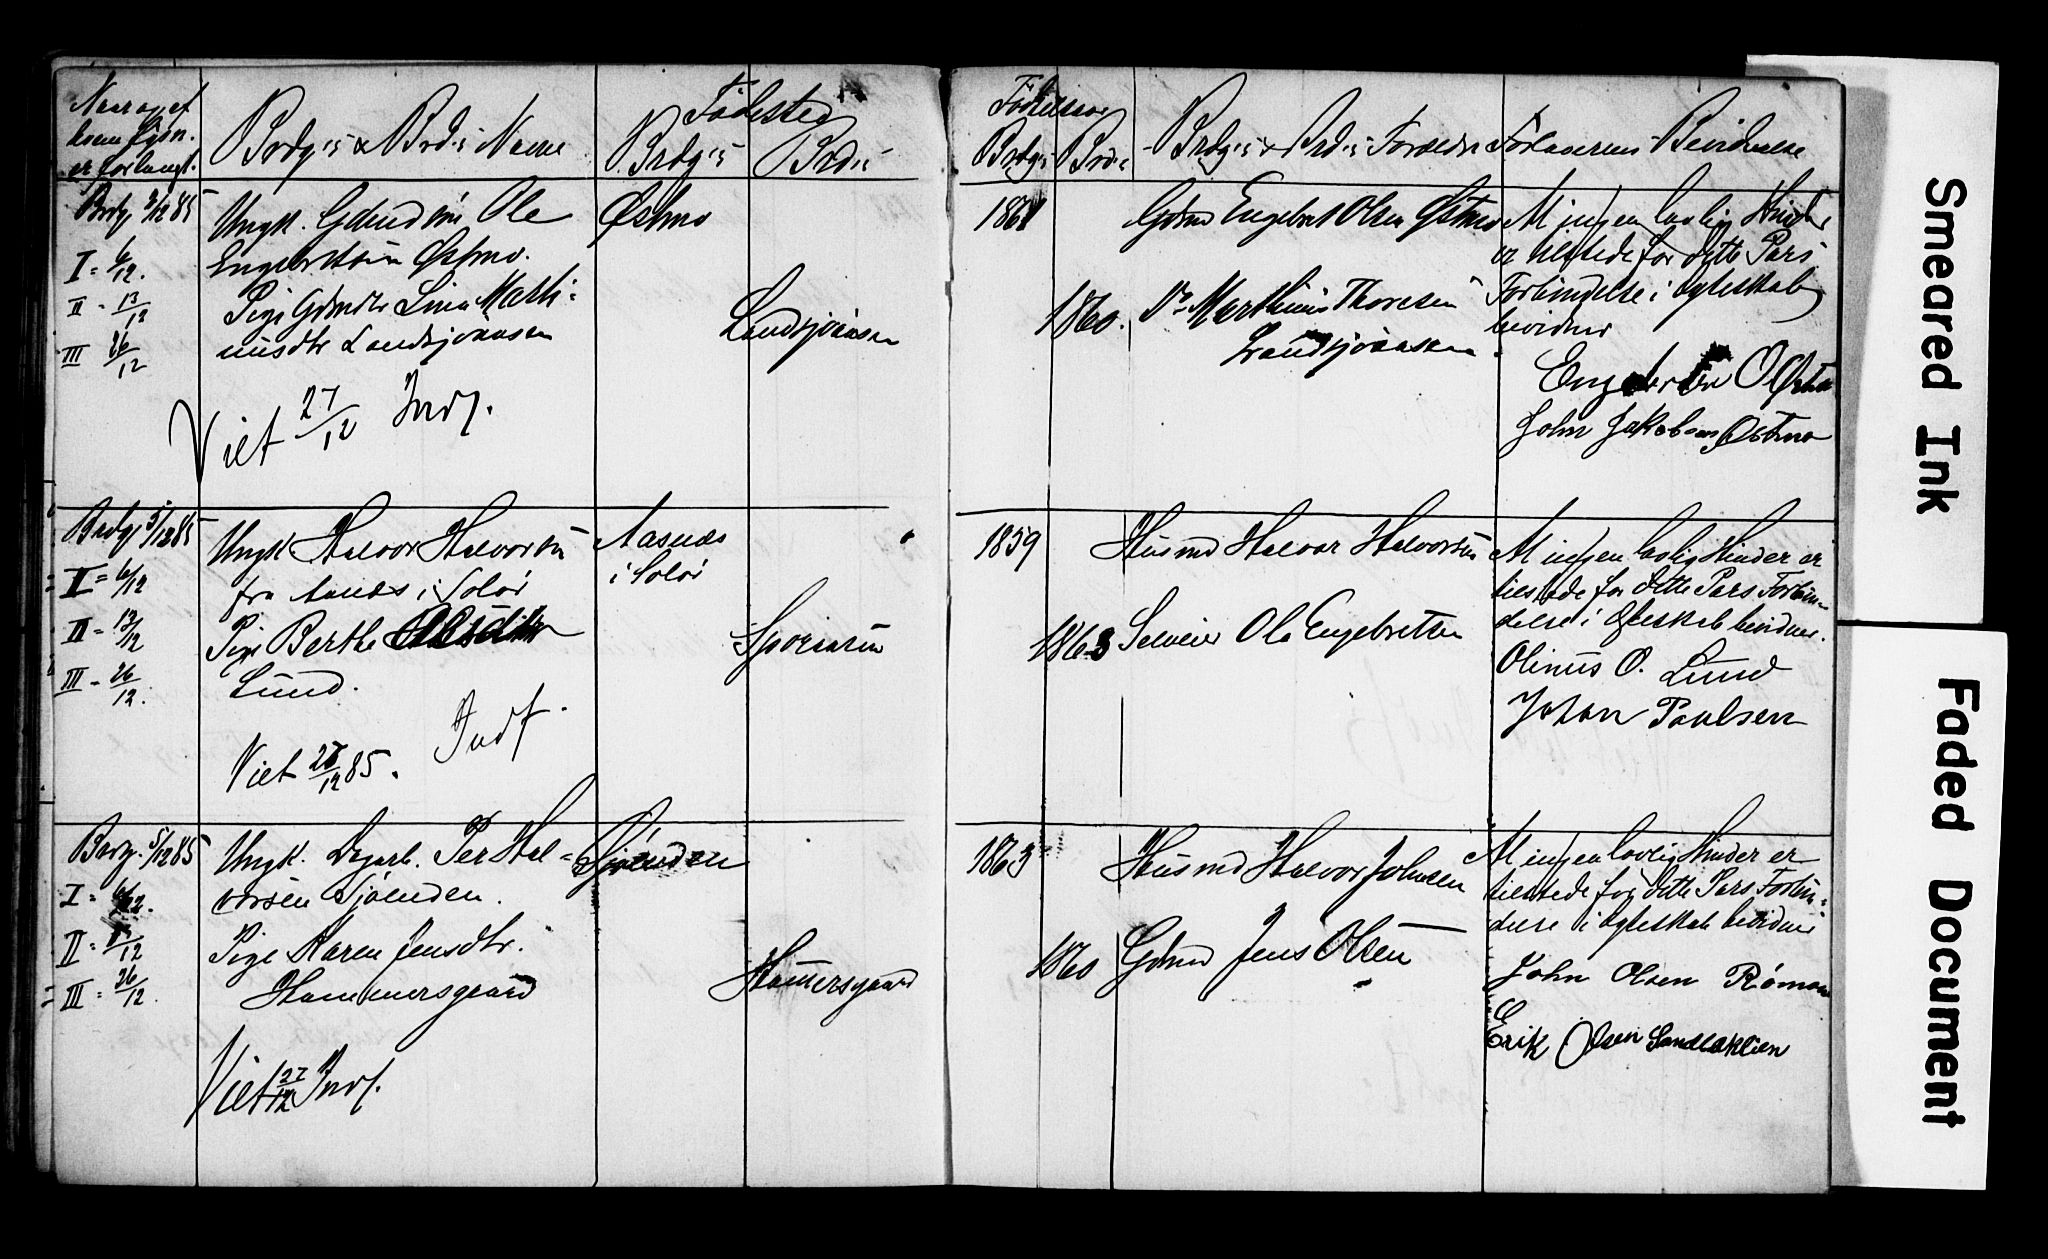 Naar og af
hvem Lysn.
er forlangt.
Brdg.s & Brd.s Navne
Fødested
Brdg.s
Brd.s
Fødselsaar
Brdg.s
Brd.s
Brdg.s & Brd.s Forældre
Forloverens Bevidnelse
Brdg. 3/12 85
I = 6/12.
II - 13/12
III 26/12
Ungk. Gdmdsøn Ole
Engebretsen Østmo.
Pige Gdmdtr Lina Marti-
nusdtr Landsjøaasen
Viet 27/12 Indf.
Østmo
Landsjøaasen
1861
1860.
Gdmd Engebret Olsen Østmo
Do Marthinus Thoresen
Landsjøaasen
At ingen lovlig Hinder
er tilstede for dette Pars
Forbindelse i Ægteskab
bevidner
Engebret O Østmo
John Jakobsen Østmo
Brdg. 5/12 85
I = 6/12
II = 13/12
III - 26/12
Ungk Halvor Halvorsen
fra Aasnæs i Solør
Pige Berthe Olesdtr
Lund.
Viet 27/12 85. Indf.
Aasnæs
i Solør
1859
1863
Husmd Halvor Halvorsen
Selveier Ole Engebretsen
At ingen lovlig Hinder er
tilstede for dette Pars Forbin-
delse i Ægteskab bevidner.
Olinus O. Lund
Johan Paulsen
Brdg. 5/12 85
I = 6/12.
II = 13/12
III = 26/12.
Ungk. Dagarb. Per Hal-
vorsen Sjøenden.
Pige Karen Jensdtr.
Hammersgaard
Viet 27/12 Indf.
Sjøenden
Hammersgaard
1863
1860
Husmd Halvor Johnsen
Gdmd Jens Olsen
At ingen lovlig Hinder er
tilstede for dette Pars Forbin-
delse i Ægteskab bevidner
John Olsen Rømoen
Erik Olsen Sandbakken
Smeared Ink
Faded Document